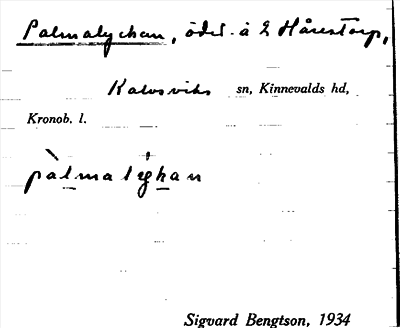 Palmalyckan, öde t. å 2 Hårestorp,
Kalvsviks sn, Kinnevalds hd,
Kronob. l.
pàlmalýkan
Sigvard Bengtson, 1934